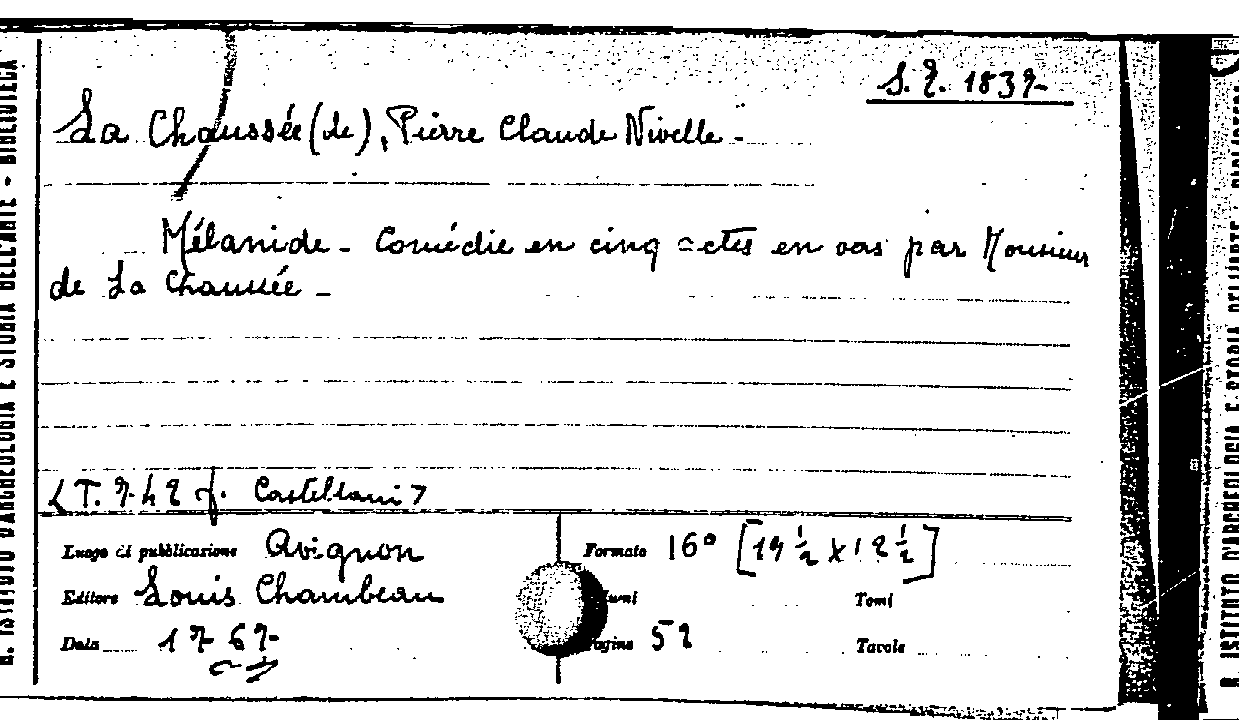 S. T. 1837
La Chaussée (de), Pierre Claude Nivelle -
Mélanide - Comédie en cinq actes en vers par Monsieur
de La Chaussée -
Castellani
Luogo di pubblicazione Avignon
Editore Louis Chambeau
Data 1767
Formato 16° [19 ½ x 12 ½]
Tomi
Pagine 52
Tavole
R. ISTITUTO D'ARCHEOLOGIA E STORIA DELL'ARTE - BIBLIOTECA
R. ISTITUTO D'ARCHEOLOGIA E STORIA DELL'ARTE - BIBLIOTECA